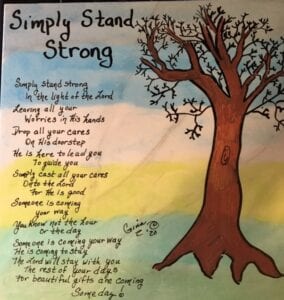 Simply Stand
Strong
Simply stand strong
In the light of the Lord
Leaving all your
Worries in His Hands
Drop all your cares
On His doorstep
He is here to lead you
To guide you
Simply cast all your cares
Onto the Lord
For He is good
Someone is coming
your way
You know not the hour
or the day
Someone is coming your way
He is coming to stay
The Lord will stay with you
The rest of your days
For beautiful gifts are coming
Some day.
'20